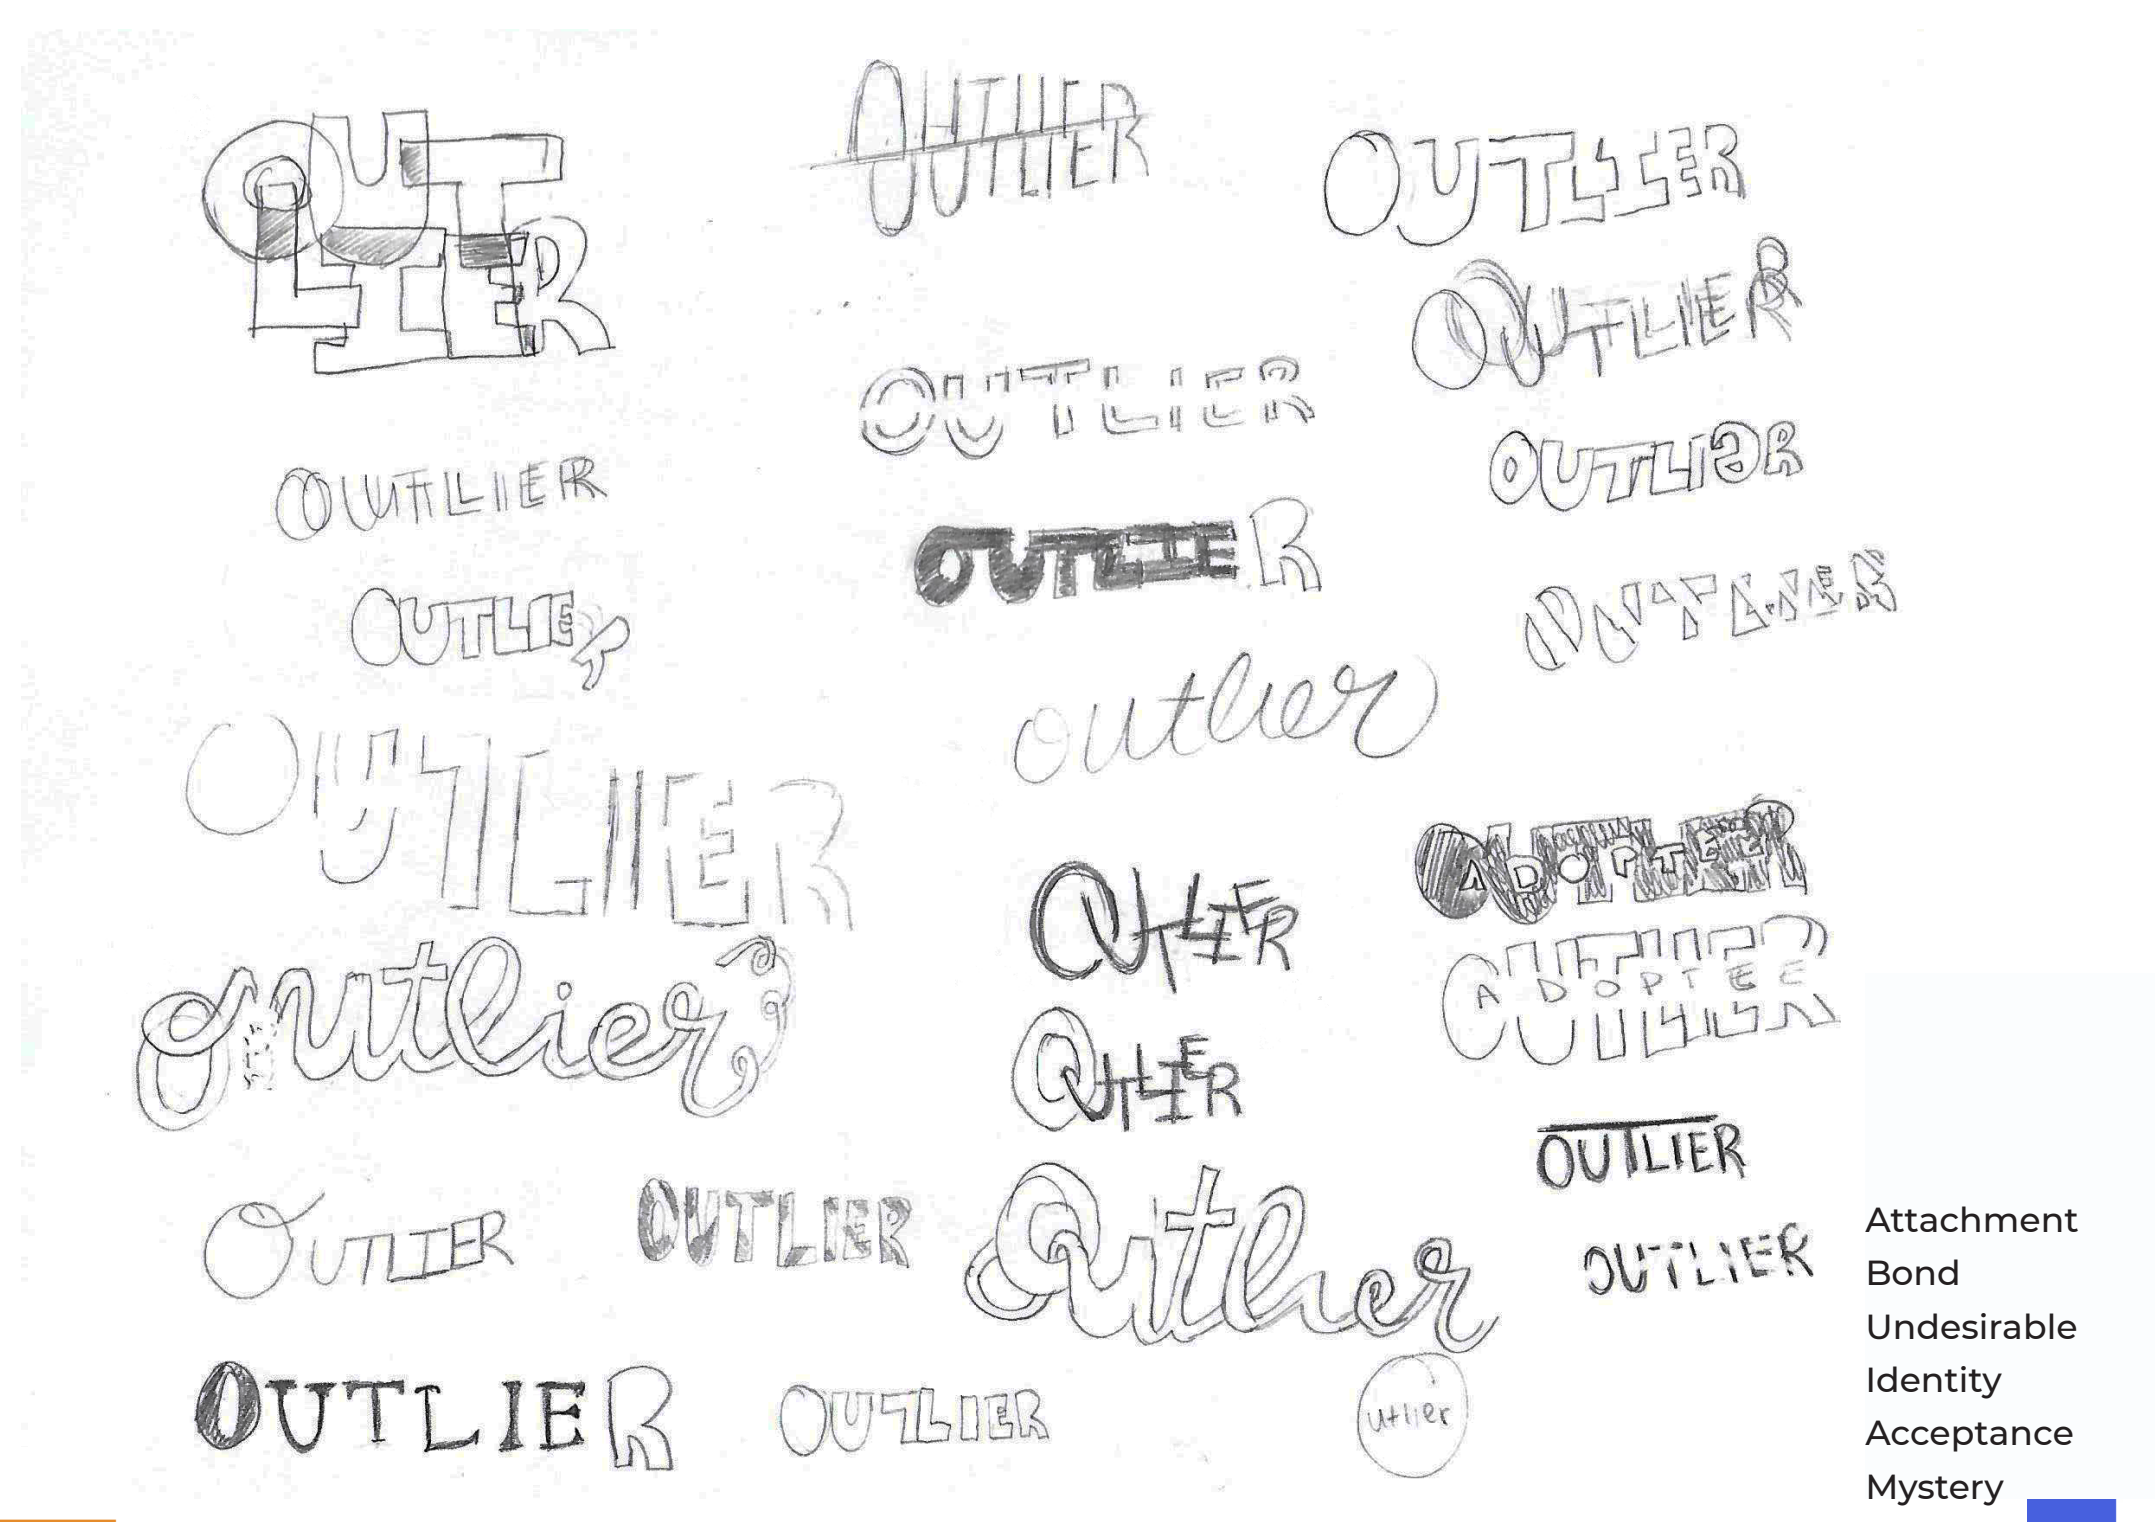 OUT
LIER
OUTLIER
OUTLIER
OUTLIER
OUTLIER
OUTLIER
OUTLIER
OUTLIER
OUTLIER
OUTLIER
OUTLIER
outlier
OUTLIER
OUTLIER
ADOPTEE
OUTLIER
ADOPTEE
outlier
OUTLIER
OUTLIER
OUTLIER
OUTLIER
outlier
OUTLIER
OUTLIER
OUTLIER
utlier
Attachment
Bond
Undesirable
Identity
Acceptance
Mystery